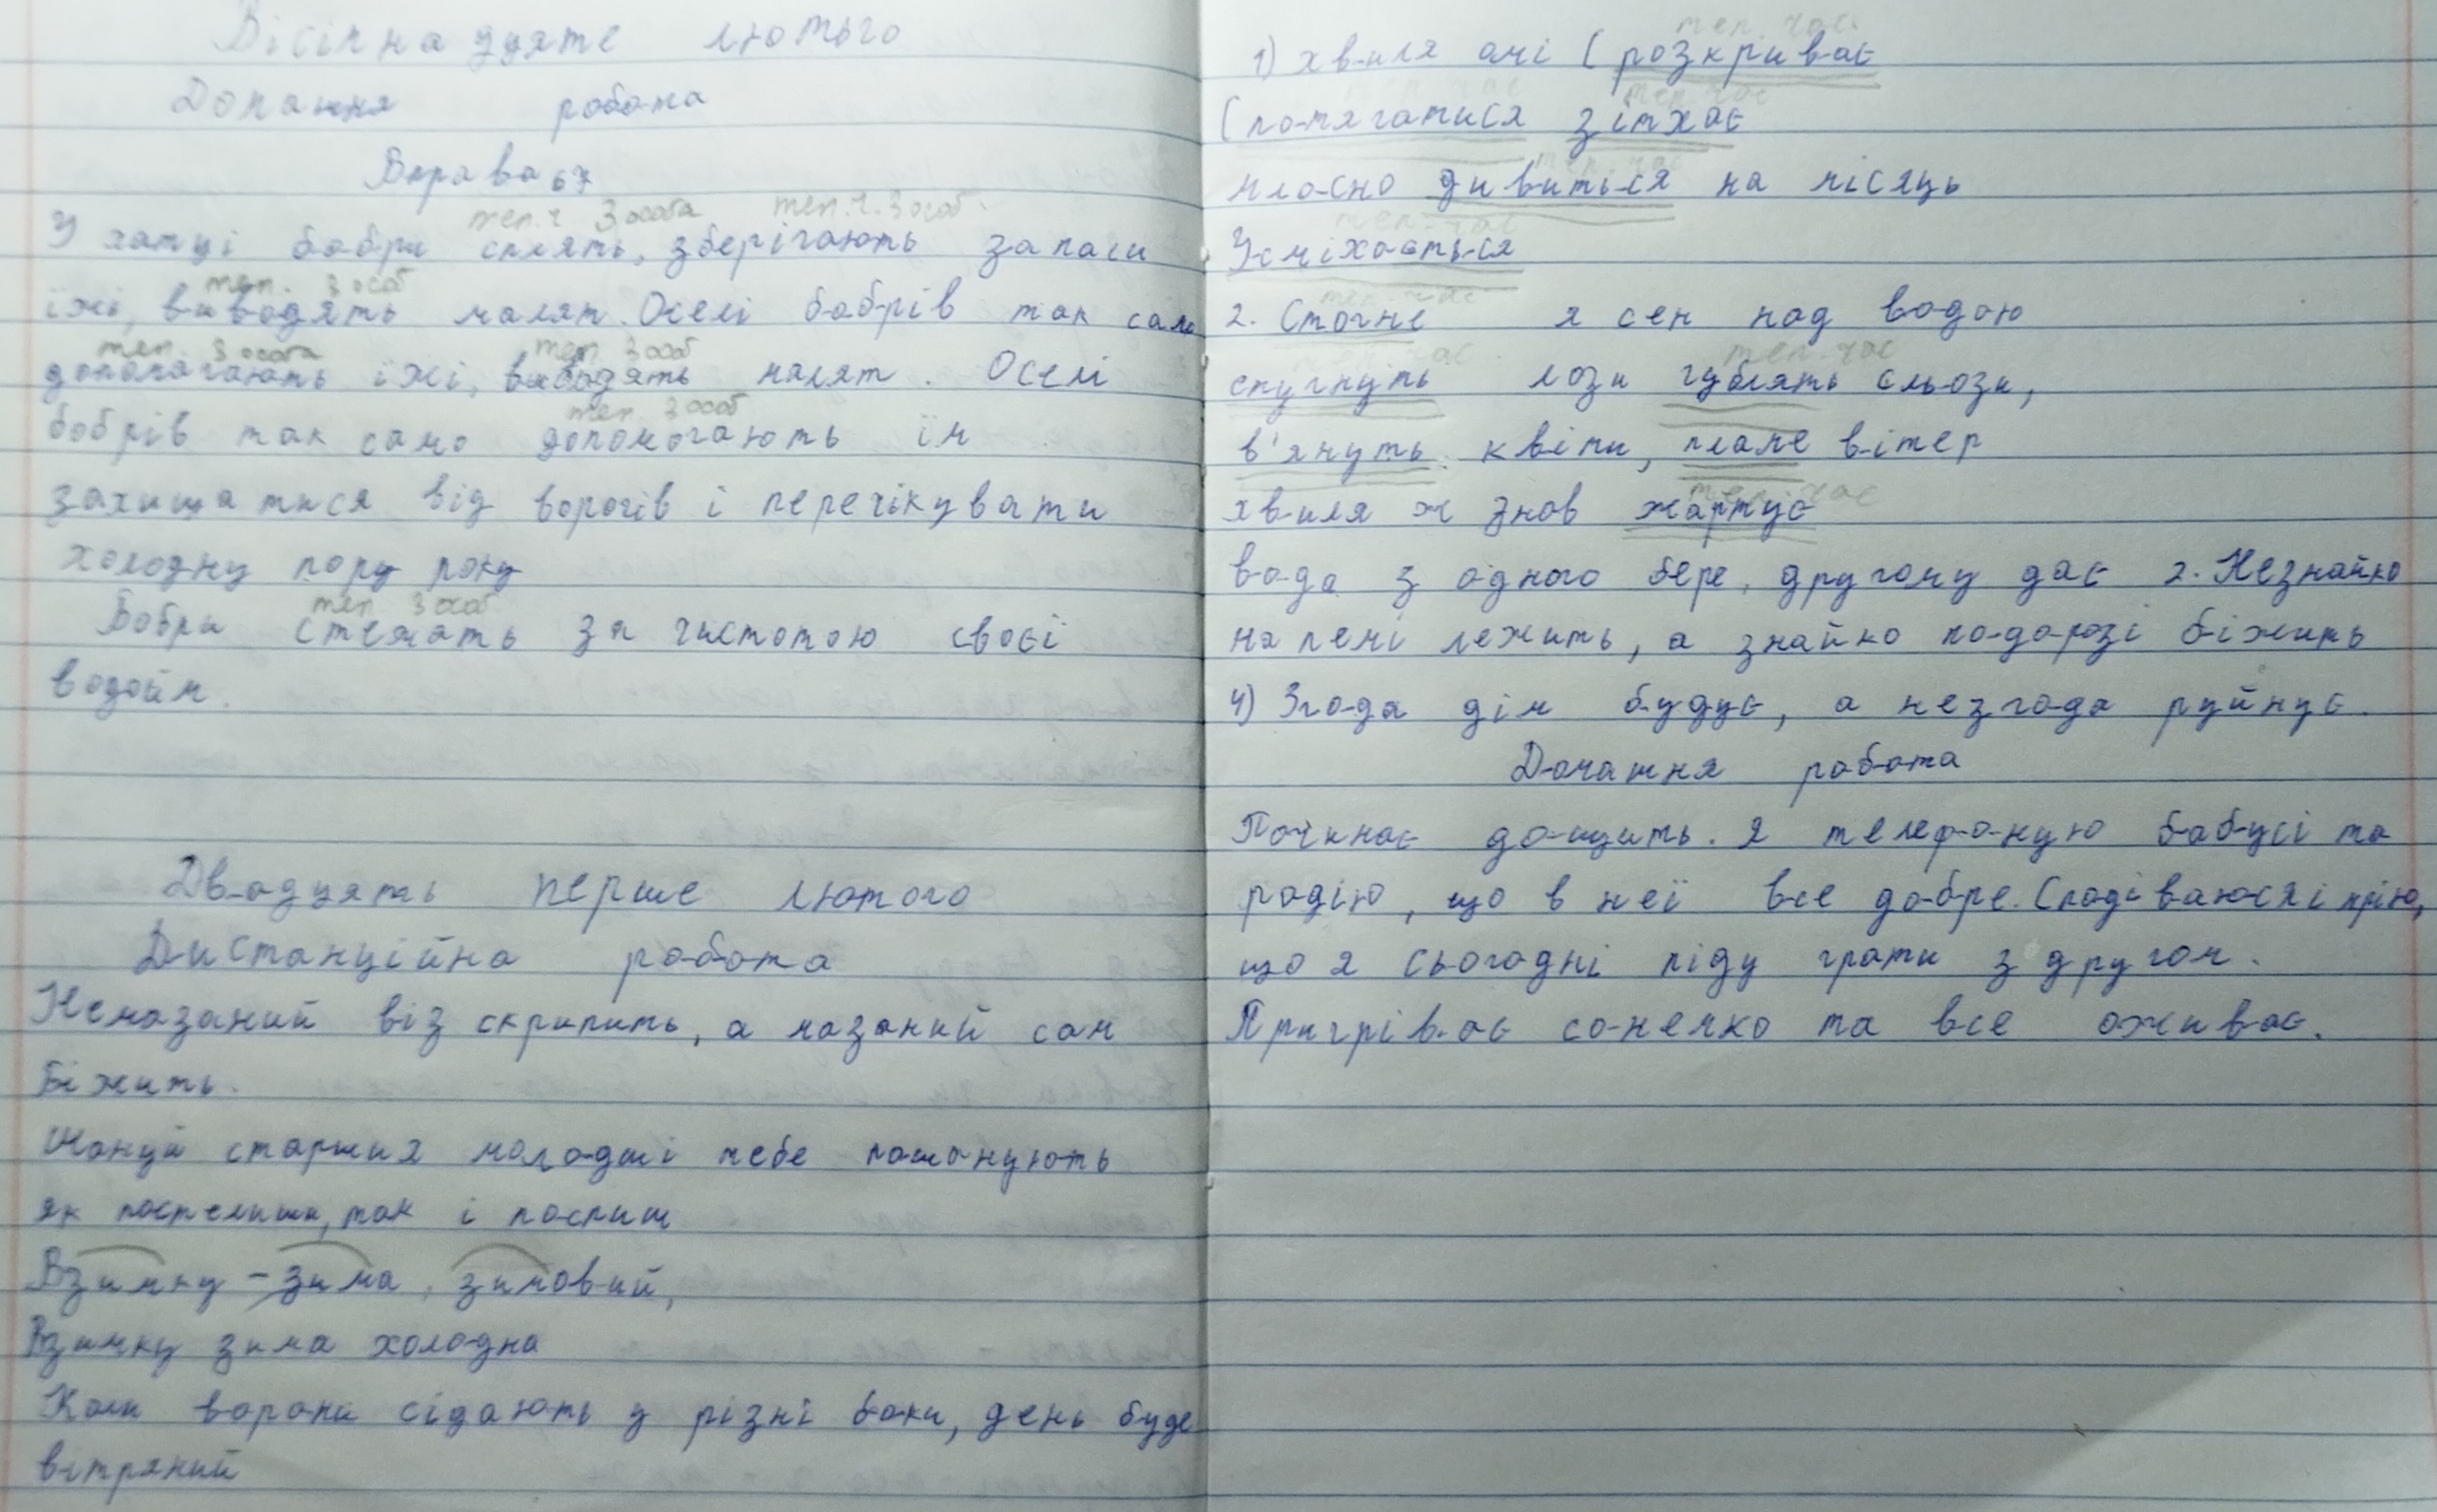 Вісімнадцяте лютього
Домашня робота
Вправа 67
теп.ч 3 особа теп.ч. 3 особ.
У хатці бобри сплять, зберігають запаси
теп. 3 особ
їжі, виводять малят. Оселі бобрів так само
теп. 3 особа теп. 3 особ
допомагають їжі, виводять малят. Оселі
теп. 3 особ
бобрів так само допомогають їм
захищатися від ворогів і перечікувати
холодну пору року
теп 3 особ
Бобри стежать за чистотою своєї
водойм.
Двадцять перше лютого
Дистанційна робота
Немазаний віз скрипить, а мазаний сам
біжить.
Шануй старших молодші тебе пошанують
як постелиш, так і поспиш
Взимку - зима, зимовий,
Взимку зима холодна
Коли ворони сідають у різні боки, день буде
вітряний
теп. час
1) хвиля очі ( розкриває
теп час
( потягатися зітхає
теп. час
млосно дивиться на місяць
теп. час
Усміхається
теп. час
2. Стогне ясен над водою
час теп. час
смугнуть лози гублять сльози,
в'януть квіти, плаче вітер
теп. час
хвиля ж знов жартує
вода з одного бере, другому дає 2. Незнайко
на печі лежить, а знайко по дорозі біжить
4) Згода дім будує, а незгода руйнує.
Домашня робота
Починає дощить. Я телефоную бабусі та
радію, що в неї все добре. Сподіваюся і мрію,
що я сьогодні піду грати з другом.
Пригріває сонечко та все оживає.